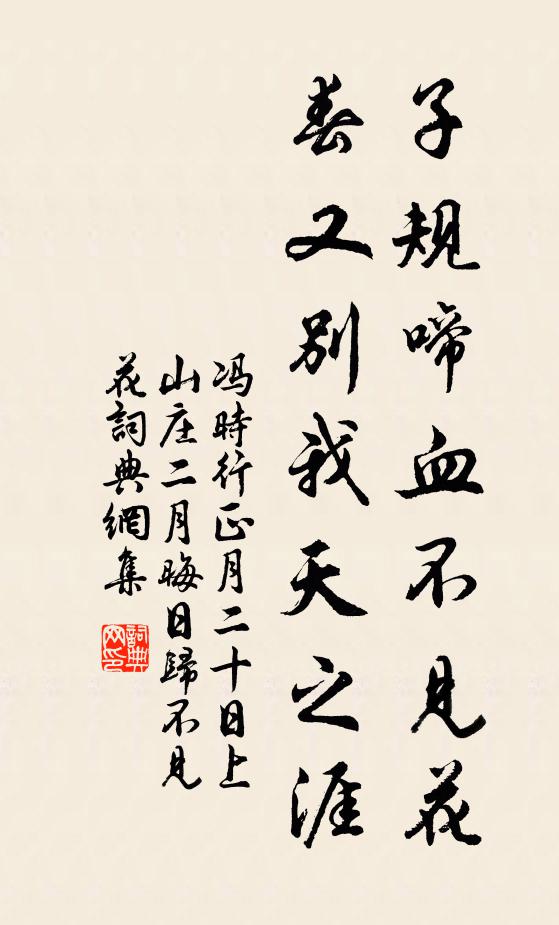 子規啼血不見花
春又别我天之涯
冯時行正月二十日上
山庄二月晦日歸不見
花詞典網集
詞典
网印